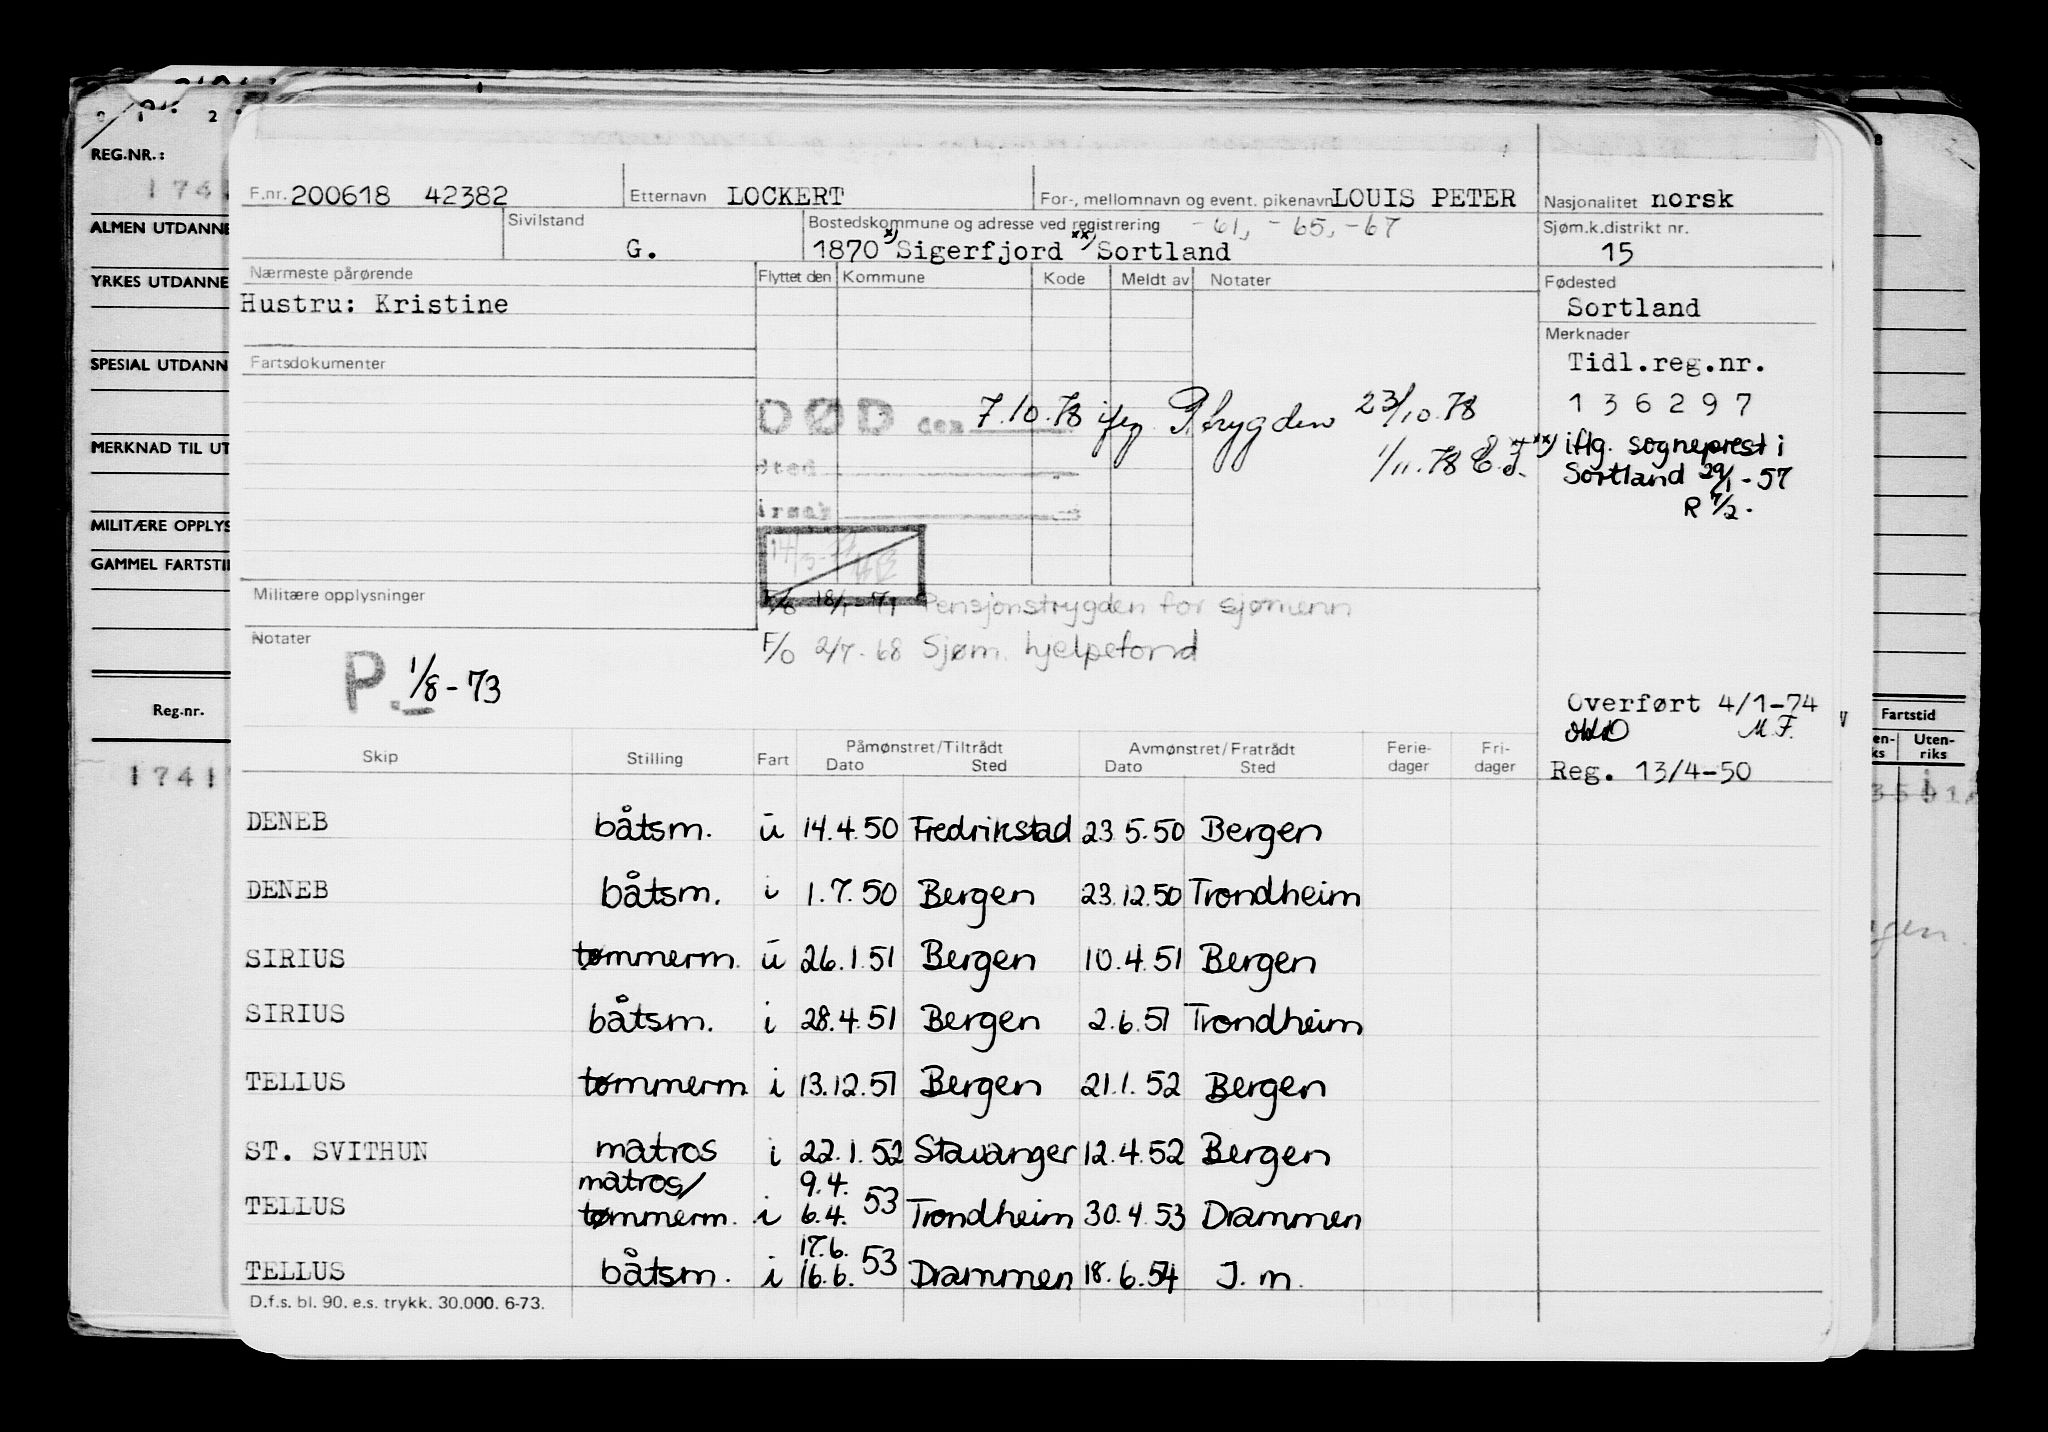 REG.NR.:
ALMEN UTDANNE
YRKES UTDANNE
SPESIAL UTDANN
MERKNAD TIL UT
MILITÆRE OPPLYS
GAMMEL FARTSTI
Reg.nr.
F.nr. 200618 42382 Etternavn LOCKERT For-, mellomnavn og event. pikenavn LOUIS PETER Nasjonalitet norsk
Sivilstand G. Bostedskommune og adresse ved registrering -61, -65, -67 Sjøm.k.distrikt nr.
1870 x) Sigerfjord xx) Sortland 15
Nærmeste pårørende Flyttet den Kommune Kode Meldt av Notater Fødested
Hustru: Kristine Sortland
Merknader
Fartsdokumenter Tidl.reg.nr.
136297
DØD den 7.10.78 ifg. P.trygden 23/10.78
1/11.78 E.F.
xx) iflg. sogneprest i
Sortland 29/1-57
R 7/2.
Sted
Årsak
Militære opplysninger 18/1-71 Pensjonstrygden for sjømenn
Notater F/O 2/7-68 Sjøm. hjelpefond
P. 1/8-73
Overført 4/1-74
M.F.
Reg. 13/4-50
Skip Stilling Fart Påmønstret/Tiltrådt Dato Sted Avmønstret/Fratrådt Dato Sted Ferie-dager Fri-dager
DENEB båtsm. u 14.4.50 Fredrikstad 23.5.50 Bergen
DENEB båtsm. i 1.7.50 Bergen 23.12.50 Trondheim
SIRIUS tømmerm. u 26.1.51 Bergen 10.4.51 Bergen
SIRIUS båtsm. i 28.4.51 Bergen 2.6.51 Trondheim
TELLUS tømmerm i 13.12.51 Bergen 21.1.52 Bergen
ST. SVITHUN matros i 22.1.52 Stavanger 12.4.52 Bergen
matros/ 9.4.
TELLUS tømmerm. i 6.4. 53 Trondheim 30.4.53 Drammen
17.6.
TELLUS båtsm. i 16.6. 53 Drammen 18.6.54 J.m.
D.f.s. bl. 90. e.s. trykk. 30.000. 6-73.
Fartstid
Uten-
riks